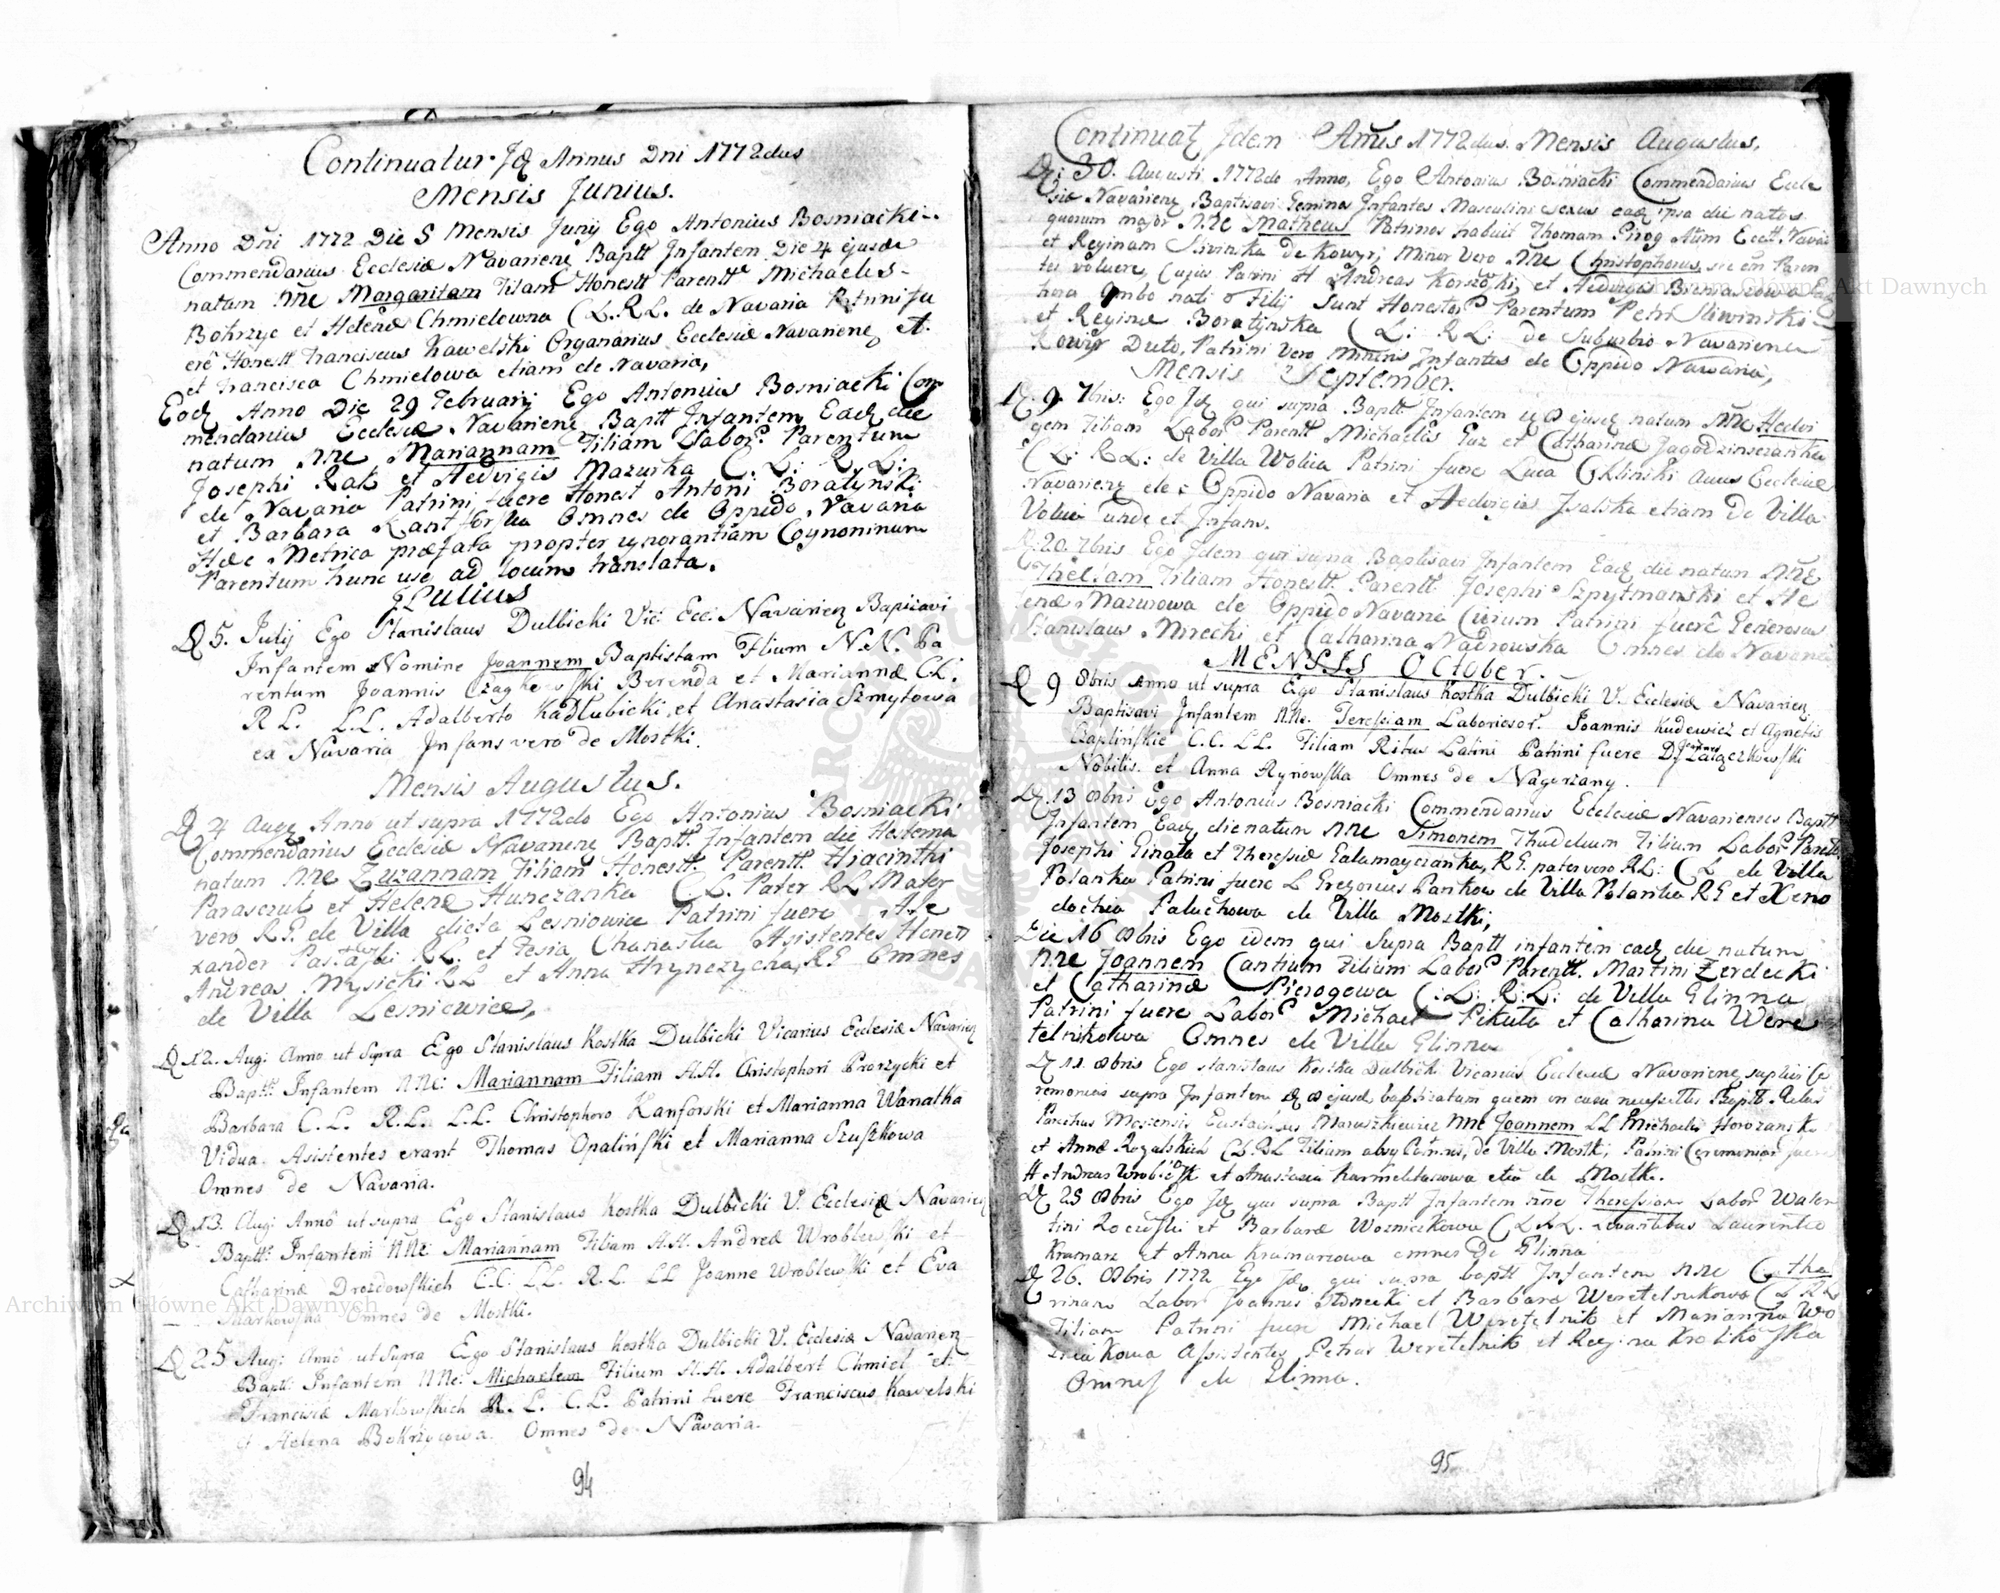 Continuatur Jd Annus Dni 1772dus
Mensis Junius.
Anno Dni 1772 Die 5 Mensis Junij Ego Antonius Bosniacki
Commendarius Ecclesiæ Navarienz Baptt Infantem Die 4 ejusde
natum nñe Margaritam Filiam Honestt Parentt Michaelis
Bokrzyc et Helenæ Chmielowna C.L.R.L. de Navaria Patrini fu
erê Honestt Franciscus Kawelski Organarius Ecclesiæ Navarienz et
et Francisca Chmielowa etiam de Navaria,
Eodz Anno Die 29 Februarij Ego Antonius Bosniacki Com
mendarius Ecclesiæ Navarienz Baptt Infantem Eadz die
natum nñe Mariannam Filiam Labor: Parentum
Josephi Rak et Hedvigis Mazurka C. L: R. L:
de Navaria Patrini fuere Honest Antoni Boratynski
et Barbara Kantforska Omnes de Oppido Navaria
Hæc Metrica præfata propter ignorantiam Cognominum
Parentum hunc usq ad locum translata.
Julius
D 5. Julij Ego Stanislaus Dulbicki Vic: Ecc: Navarienz Baptizavi
Infantem Nomine Joannem Baptistam Filium N.N. Pa
rentum Joannis Berenda et Mariannæ CL.
R L. L.L. Adalberto Kadlubicki et Anastasia Szmytowa
ex Navaria Infans vero de Mostki.
Mensis Augustus.
D 4 Augz Anno ut supra 1772do Ego Antonius Bosniacki
Commendarius Ecclesiæ Navarienz Baptt Infantem die Hesterna
natum nñe Zuzannam Filiam Honestt Parentt Hiacinthi
Parasczuk et Helenæ Hunczanka C.L. Pater RL Mater
vero R.G. de Villa dicta Lesniowice Patrini fuere Ale
xander RL. et Tesia Chanaska Asistentes Honest
Andreas Mysicki RL et Anna Hrynczycha, RG Omnes
de Villa Lesniewice,
D 12. Aug: Anno ut Supra Ego Stanislaus Kostka Dulbicki Vicarius Ecclesiæ Navarienz
Baptt: Infantem nñe: Mariannam Filiam H.H. Christophori Prorzycki et
Barbara C. L. R.L. L.L. Christophoro Kanforski et Marianna Wanatka
Vidua. Asistentes erant Thomas Opalinski et Marianna Szuszkowa
Omnes de Navaria.
D 13. Aug: Annô ut supra Ego Stanislaus Kostka Dulbicki V. Ecclesiæ Navarienz
Baptt: Infantem nñe: Mariannam Filiam H.H. Andreæ Wroblewski et
Catharinæ Drozdowskich C.C: LL. R.L. LL Joanne Wroblewski et Eva
Markowska Omnes de Mostki.
D 25 Aug: Annô ut Supra Ego Stanislaus Kostka Dulbicki V. Ecclesiæ Navarienz
Baptt: Infantem nñe: Michaelem Filium H.H. Adalbert Chmiel et
Franciscæ Markowskich R. L. C.L. Patrini fuere Franciscus Kawelski
et Helena Bokrzycowa. Omnes de Navaria.
94
Continuatz Jdem Annus 1772dus. Mensis Augustus,
D: 30. Augusti 1772do Anno, Ego Antonius Bosniacki Commendarius Eccle
siæ Navarienz Baptisavi Geminos Infantes Masculini sexus eadz ipsa die natos
quorum major nñe Matheus Patrinos habuit Thomam Pirog
et Reginam Sliwinska de Kowyr; Minor vero nñe Christophorus,
Cujus Patrini H Andreas et Hedvigis
Ambo nati Filij Sunt Honestor Parentum Petri Sliwinski
et Reginæ Boratynska C L: R L: de Suburbio Navariensi
Kowyr Dicto, Patrini vero minoris Infantis de Oppido Navaria,
Mensis September.
D. 9. 7bris: Ego Jdz qui supra Baptt Infantem natum nñe Hedvi
gem Filiam Labor Parentt Michaelis Guz et Catharinæ
C L: R L: de Villa Wolica Patrini fuere Luca Oklinski Ecclesiæ
Navarienz de Oppido Navaria et Hedvigis etiam De Villa
Volica unde et Infans.
D. 20. 7bris Ego Jdem qui supra Baptisavi Infantem Eadz die natum nñe
Theclam Filiam Honestt Parentt Josephi Szpytmanski et He
lenæ Mazurowa de Oppido Navaria Cuium Patrini fuere Generosus
Stanislaus Mirecki et Catharina Nadrowska Omnes de Navaria
MENSIS OCTOBER.
D 9 8bris Anno ut supra Ego Stanislaus Kostka Dulbicki V. Ecclesiæ Navarienz
Baptisavi Infantem nñe. Teressiam Laboriosor. Joannis Kudewicz et Agnetis
Czaplinskie C.C. LL. Filiam Ritus Latini Patrini fuere D. Joannes Zaiączkowski
Nobilis. et Anna Rynowska Omnes de Nagorzany.
D. 13 8bris Ego Antonius Bosniacki Commendarius Ecclesiæ Navariensis Baptt
Infantem Eadz die natum nñe Simonem Thaddeum Filium Labor Parentt
Josephi Ginala et Theressiæ Galamayczanka, R.G. pater vero RL: C L de Villa
Polanka Patrini fuere L Gregorius Pankow de Villa Polanka RG et Xeno
dochia Paluchowa de Villa Mostki,
Die 16 8bris Ego idem qui Supra Baptt infantem eadz die natum
nñe Joannem Cantium Filium Labor Parentt. Martini Zerdecki
et Catharinæ Pierogowa C: L: R.L: de Villa Glinna
Patrini fuere Labor Michael Pikuta et Catharina Were
telnikowa Omnes de Villa Glinna
D 11. 8bris Ego Stanislaus Kostka Dulbicki Vicarius Ecclesiæ Navarienz suplevi Ce
remonias supra Infantem ejusdz baptizatum quem in casu necessitts Baptt
Parochus Eustachius nñe Joannem LL Michaelis
et Annæ Rogalskich CL RL Filium de Villa Mostki; Patrini Ceremoniar fuere
H Andreas et Anastasia Karmelitasowa etiã de Mostki.
D 25 8bris Ego Jdz qui supra Baptt Infantem nñe Theressiam Labor Walen
tini et Barbaræ Wozniczkowa CL RL. Levantibus Laurentio
Kramarz et Anna Kramarzowa omnes De Glinna
D 26. 8bris 1772 Ego Jdz qui supra baptt Infantem nñe Catha
rinam Labor Joannis et Barbaræ Weretelnikowa C L RL
Filiam Patrini fuere Michael Weretelnik et Marianna Wo
zniakowa Assistentes Petrus Weretelnik et Regina Krolikoska
Omnes de Glinna.
95
Archiwum Główne Akt Dawnych
Archiwum Główne Akt Dawnych